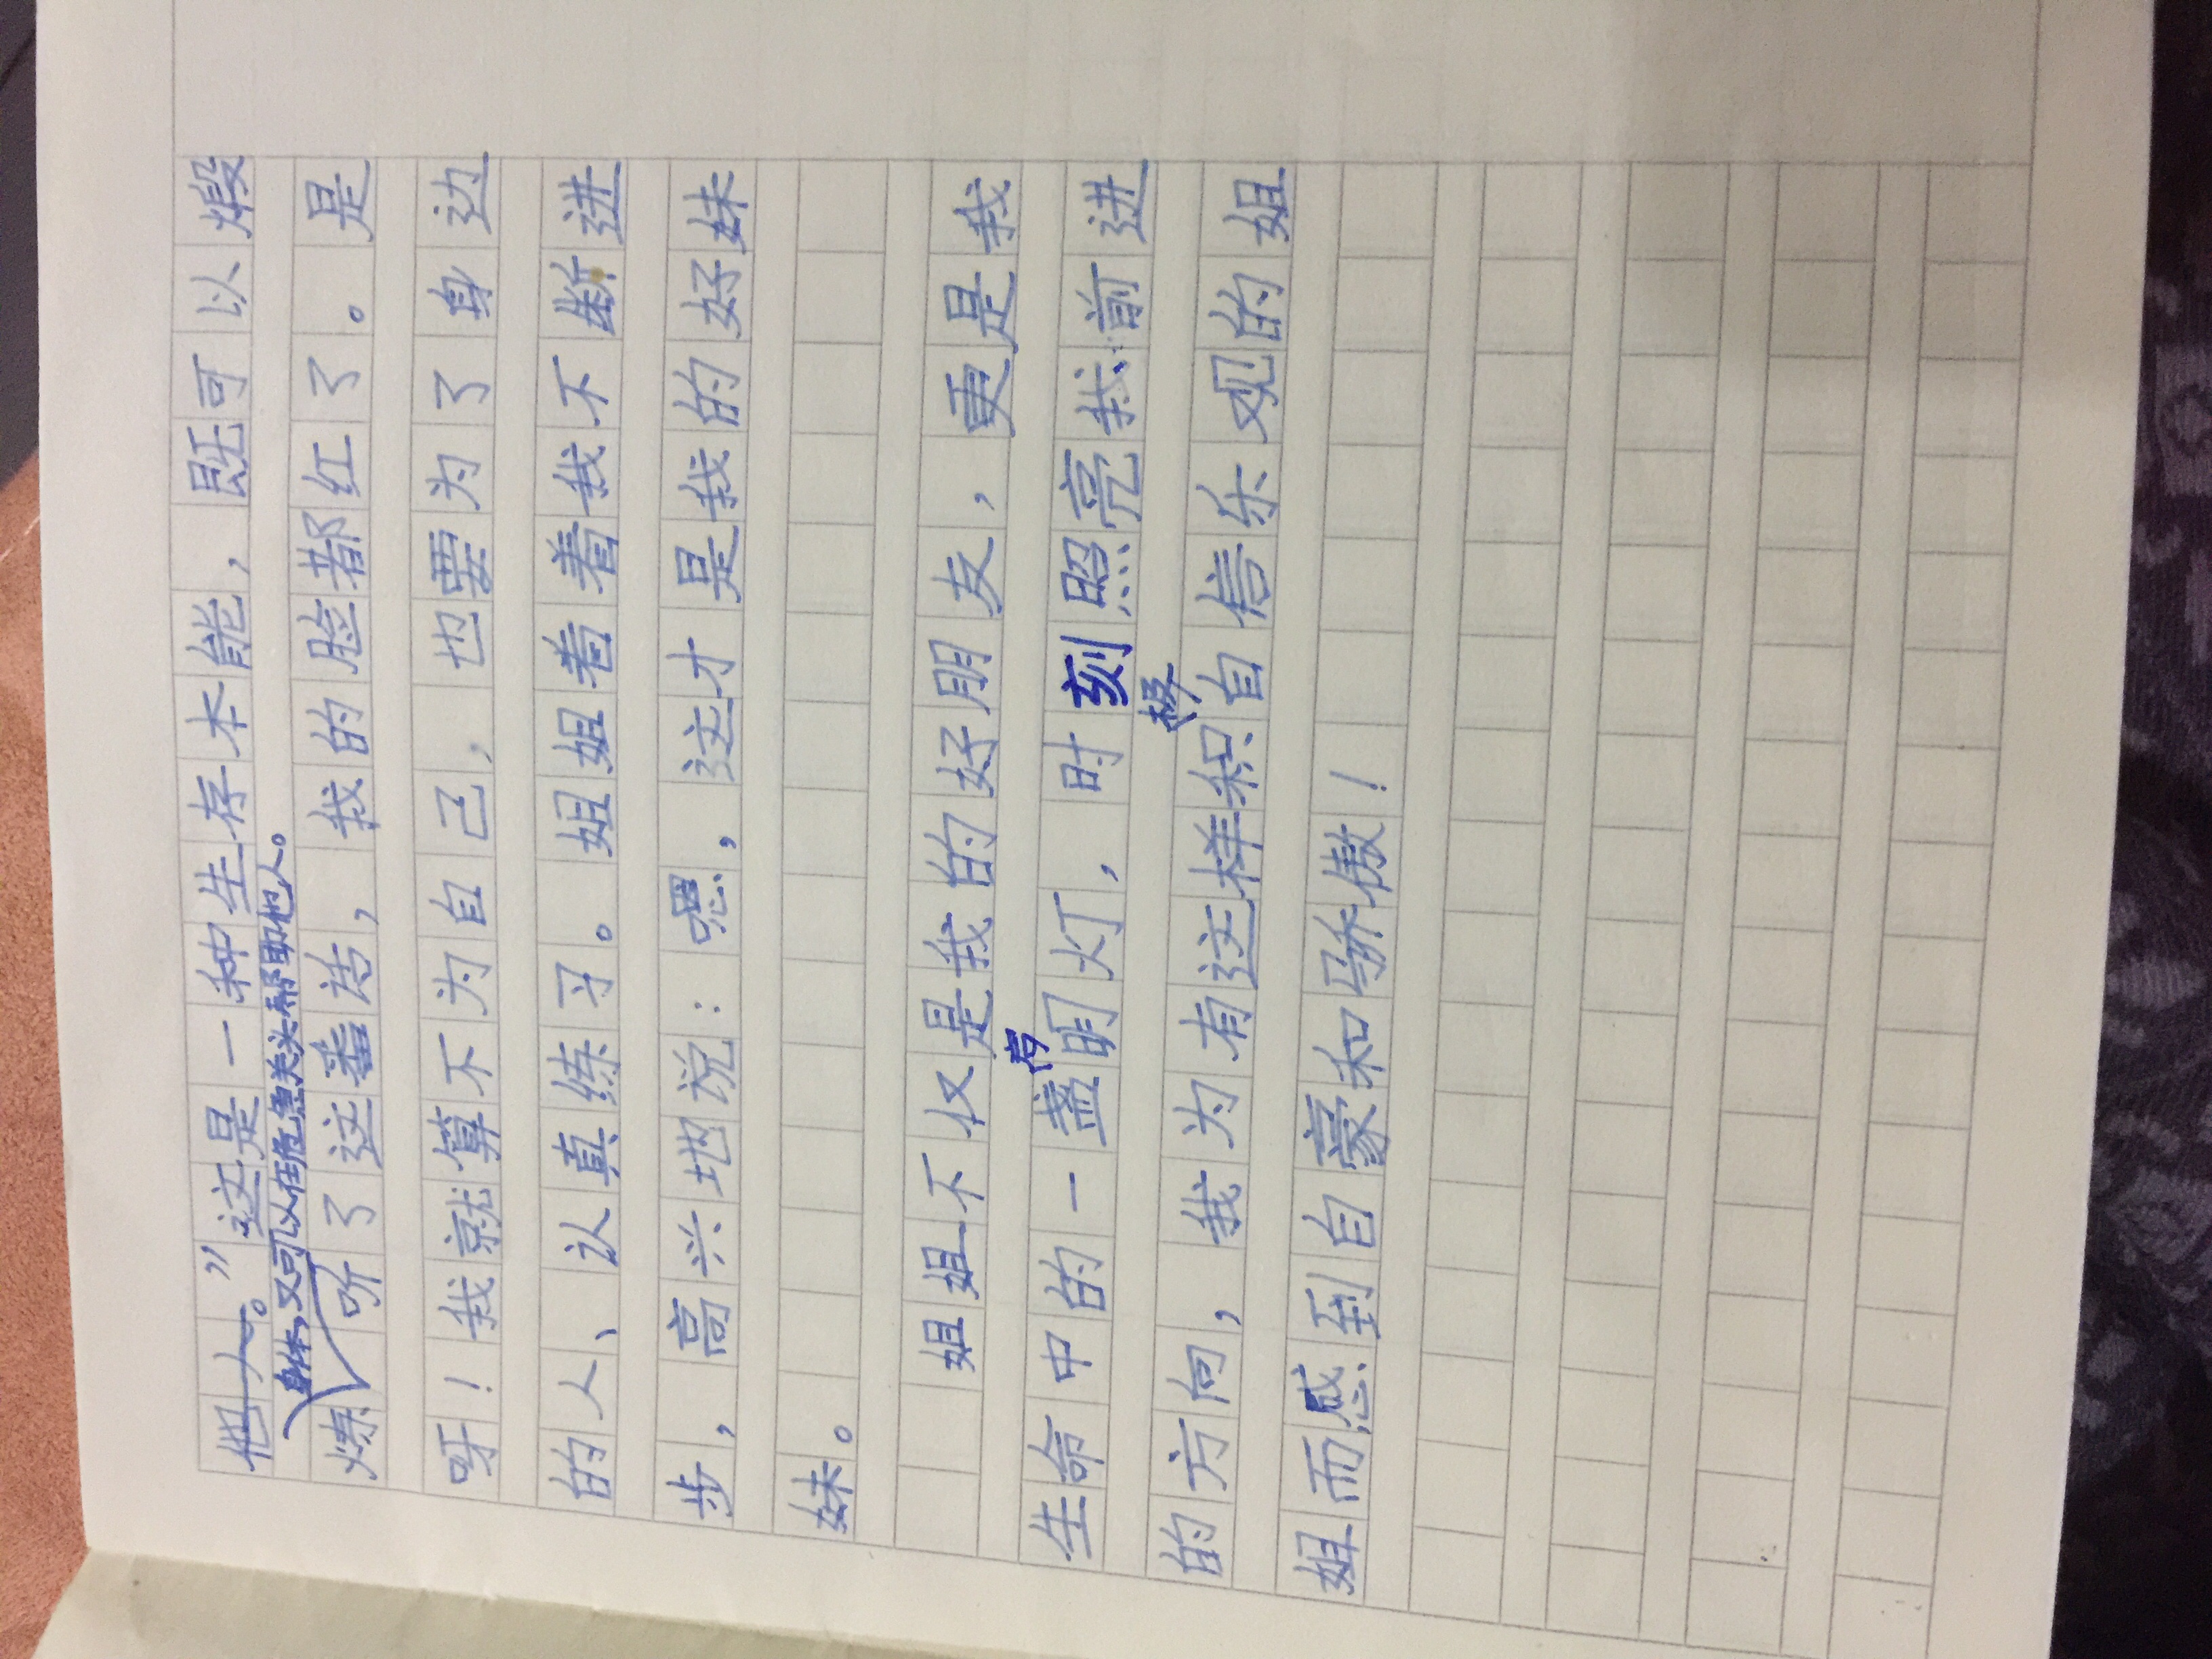 他人。”这是一种生存本能，既可以煅
身体，又可以在危急关头帮助他人。
炼听了这番话，我的脸都红了。是
呀！我就算不为自己，也要为了身边
的人、认真练习。姐姐看着我不断进
步，高兴地说：嗯，这才是我的好妹
妹。
姐姐不仅是我的好朋友，更是我
信
生命中的一盏明灯，时刻照亮我前进
极
的方向，我为有这样积自信乐观的姐
姐而感到自豪和骄傲！